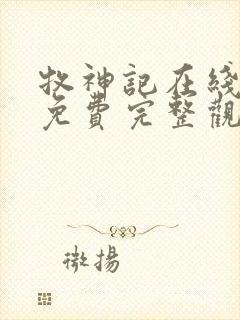 牧神記在綫
免費完整觀
微揚